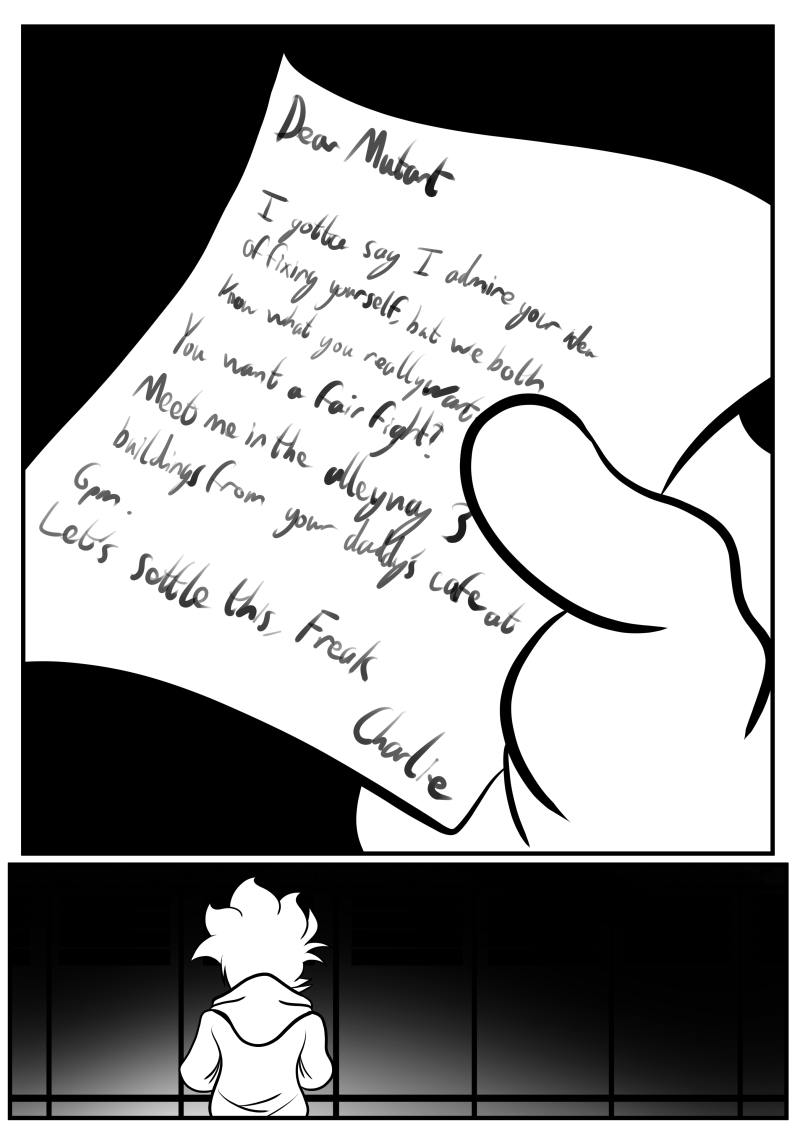 Dear Mutant
I gotta say I admire your idea
of fixing yourself, but we both
know what you really want
You want a fair fight?
Meet me in the alleyway 3
buildings from your daddy's cafe at
6pm.
Let's settle this, Freak
Charlie